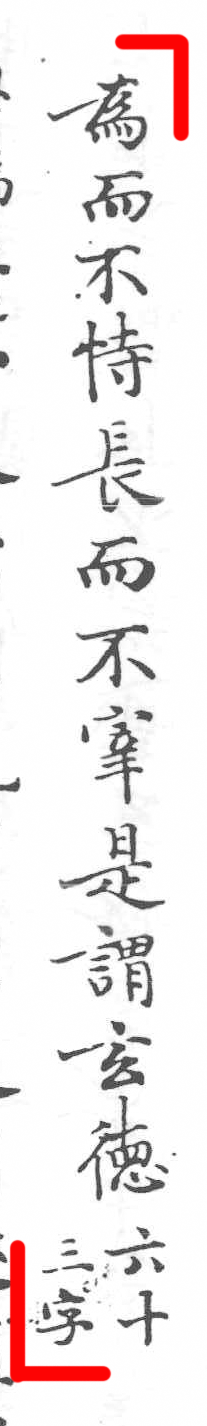 為而不恃長而不宰是謂玄德六十
三字